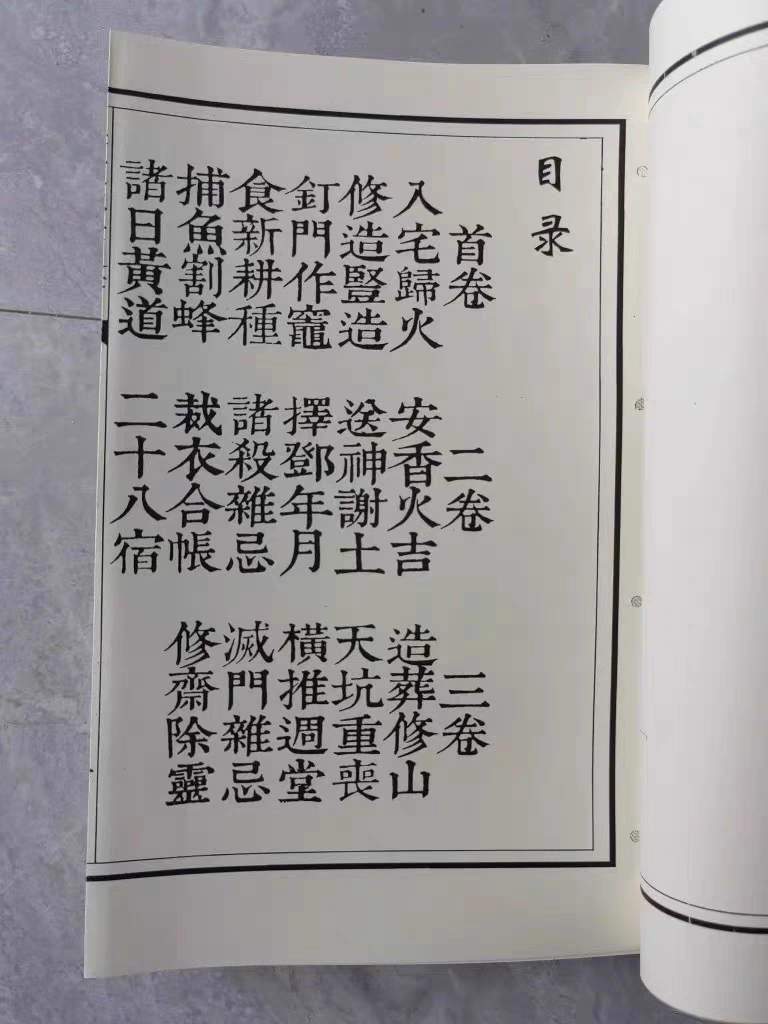 目录
首卷
入宅歸火
修造豎造
釘門作竈
食新耕種
捕魚割蜂
諸日黃道
二卷
安香火吉
送神謝土
擇鄧年月
諸殺雜忌
裁衣合帳
二十八宿
三卷
造葬修山
天坑重喪
橫推週堂
滅門雜忌
修齋除靈